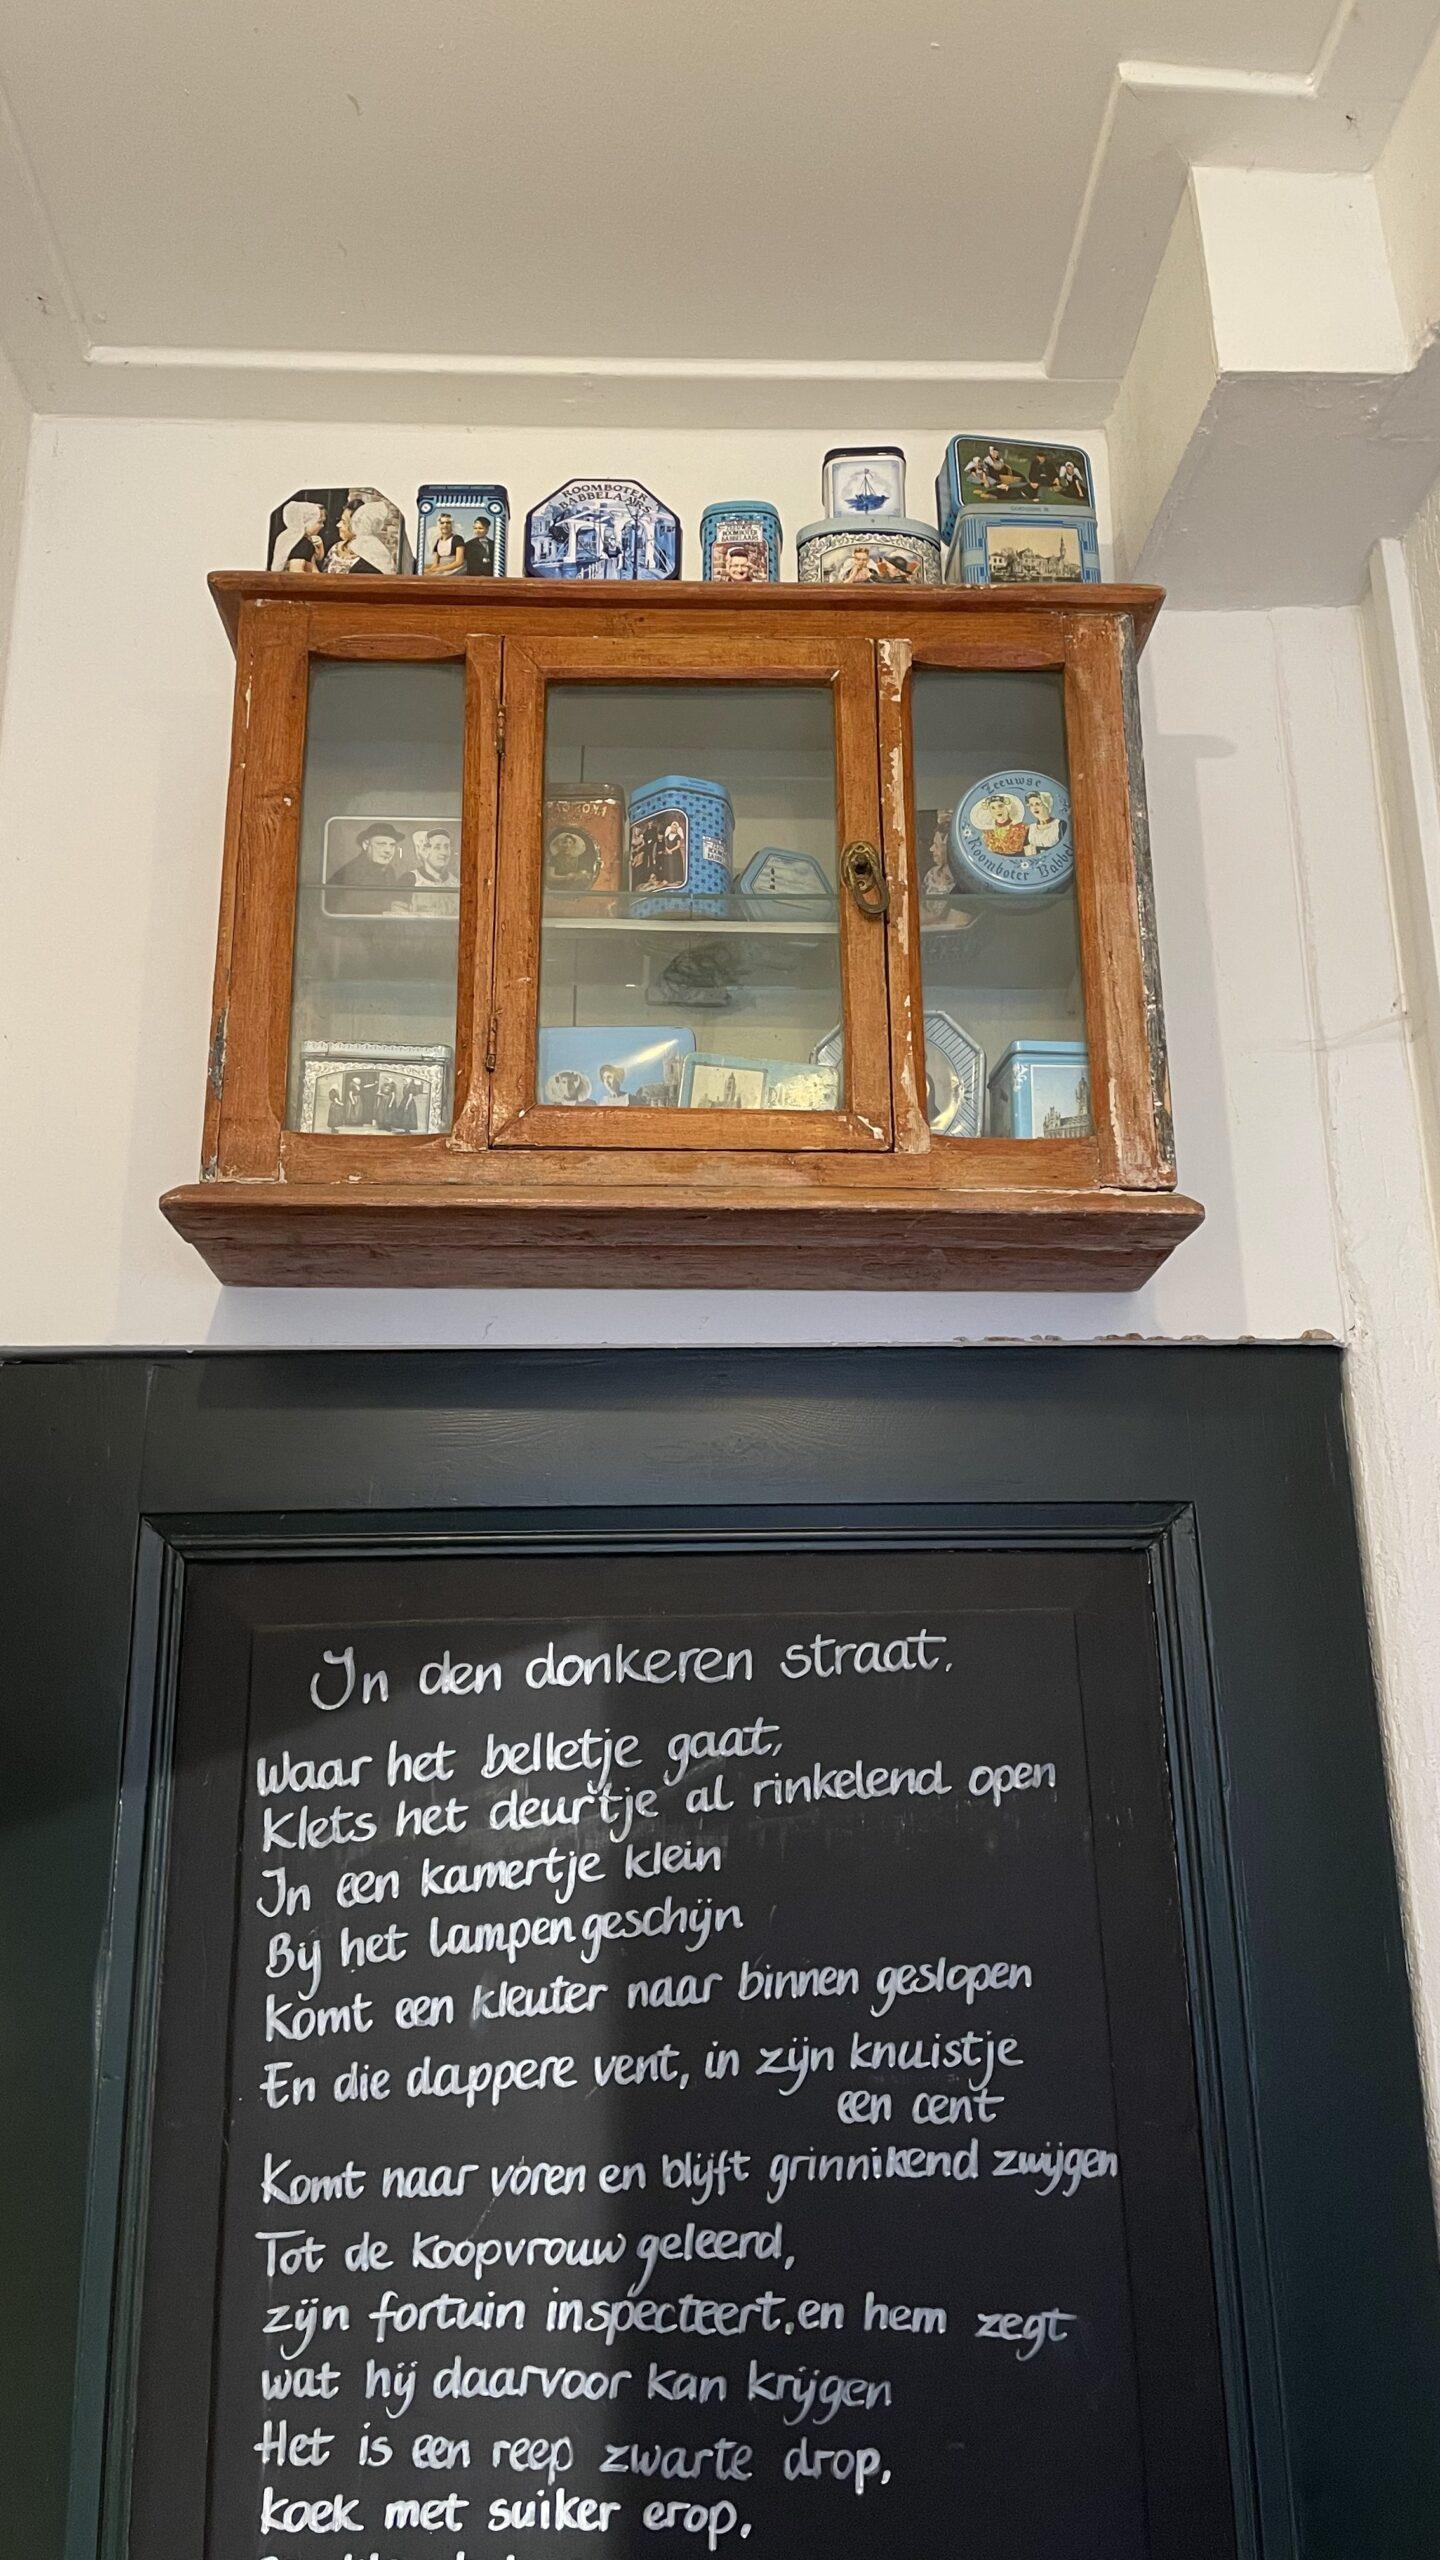 ROOMBOTER
BABBELAARS
Zeeuwse
Roomboter Babbel
In den donkeren straat.
Waar het belletje gaat,
Klets het deurtje al rinkelend open
In een kamertje klein
Bij het lampengeschijn
Komt een kleuter naar binnen geslopen
En die dappere vent, in zijn knuistje
een cent
Komt naar voren en blijft grinnikend zwijgen
Tot de koopvrouw geleerd,
zijn fortuin inspecteert. en hem zegt
wat hij daarvoor kan krijgen
Het is een reep zwarte drop,
koek met suiker erop,